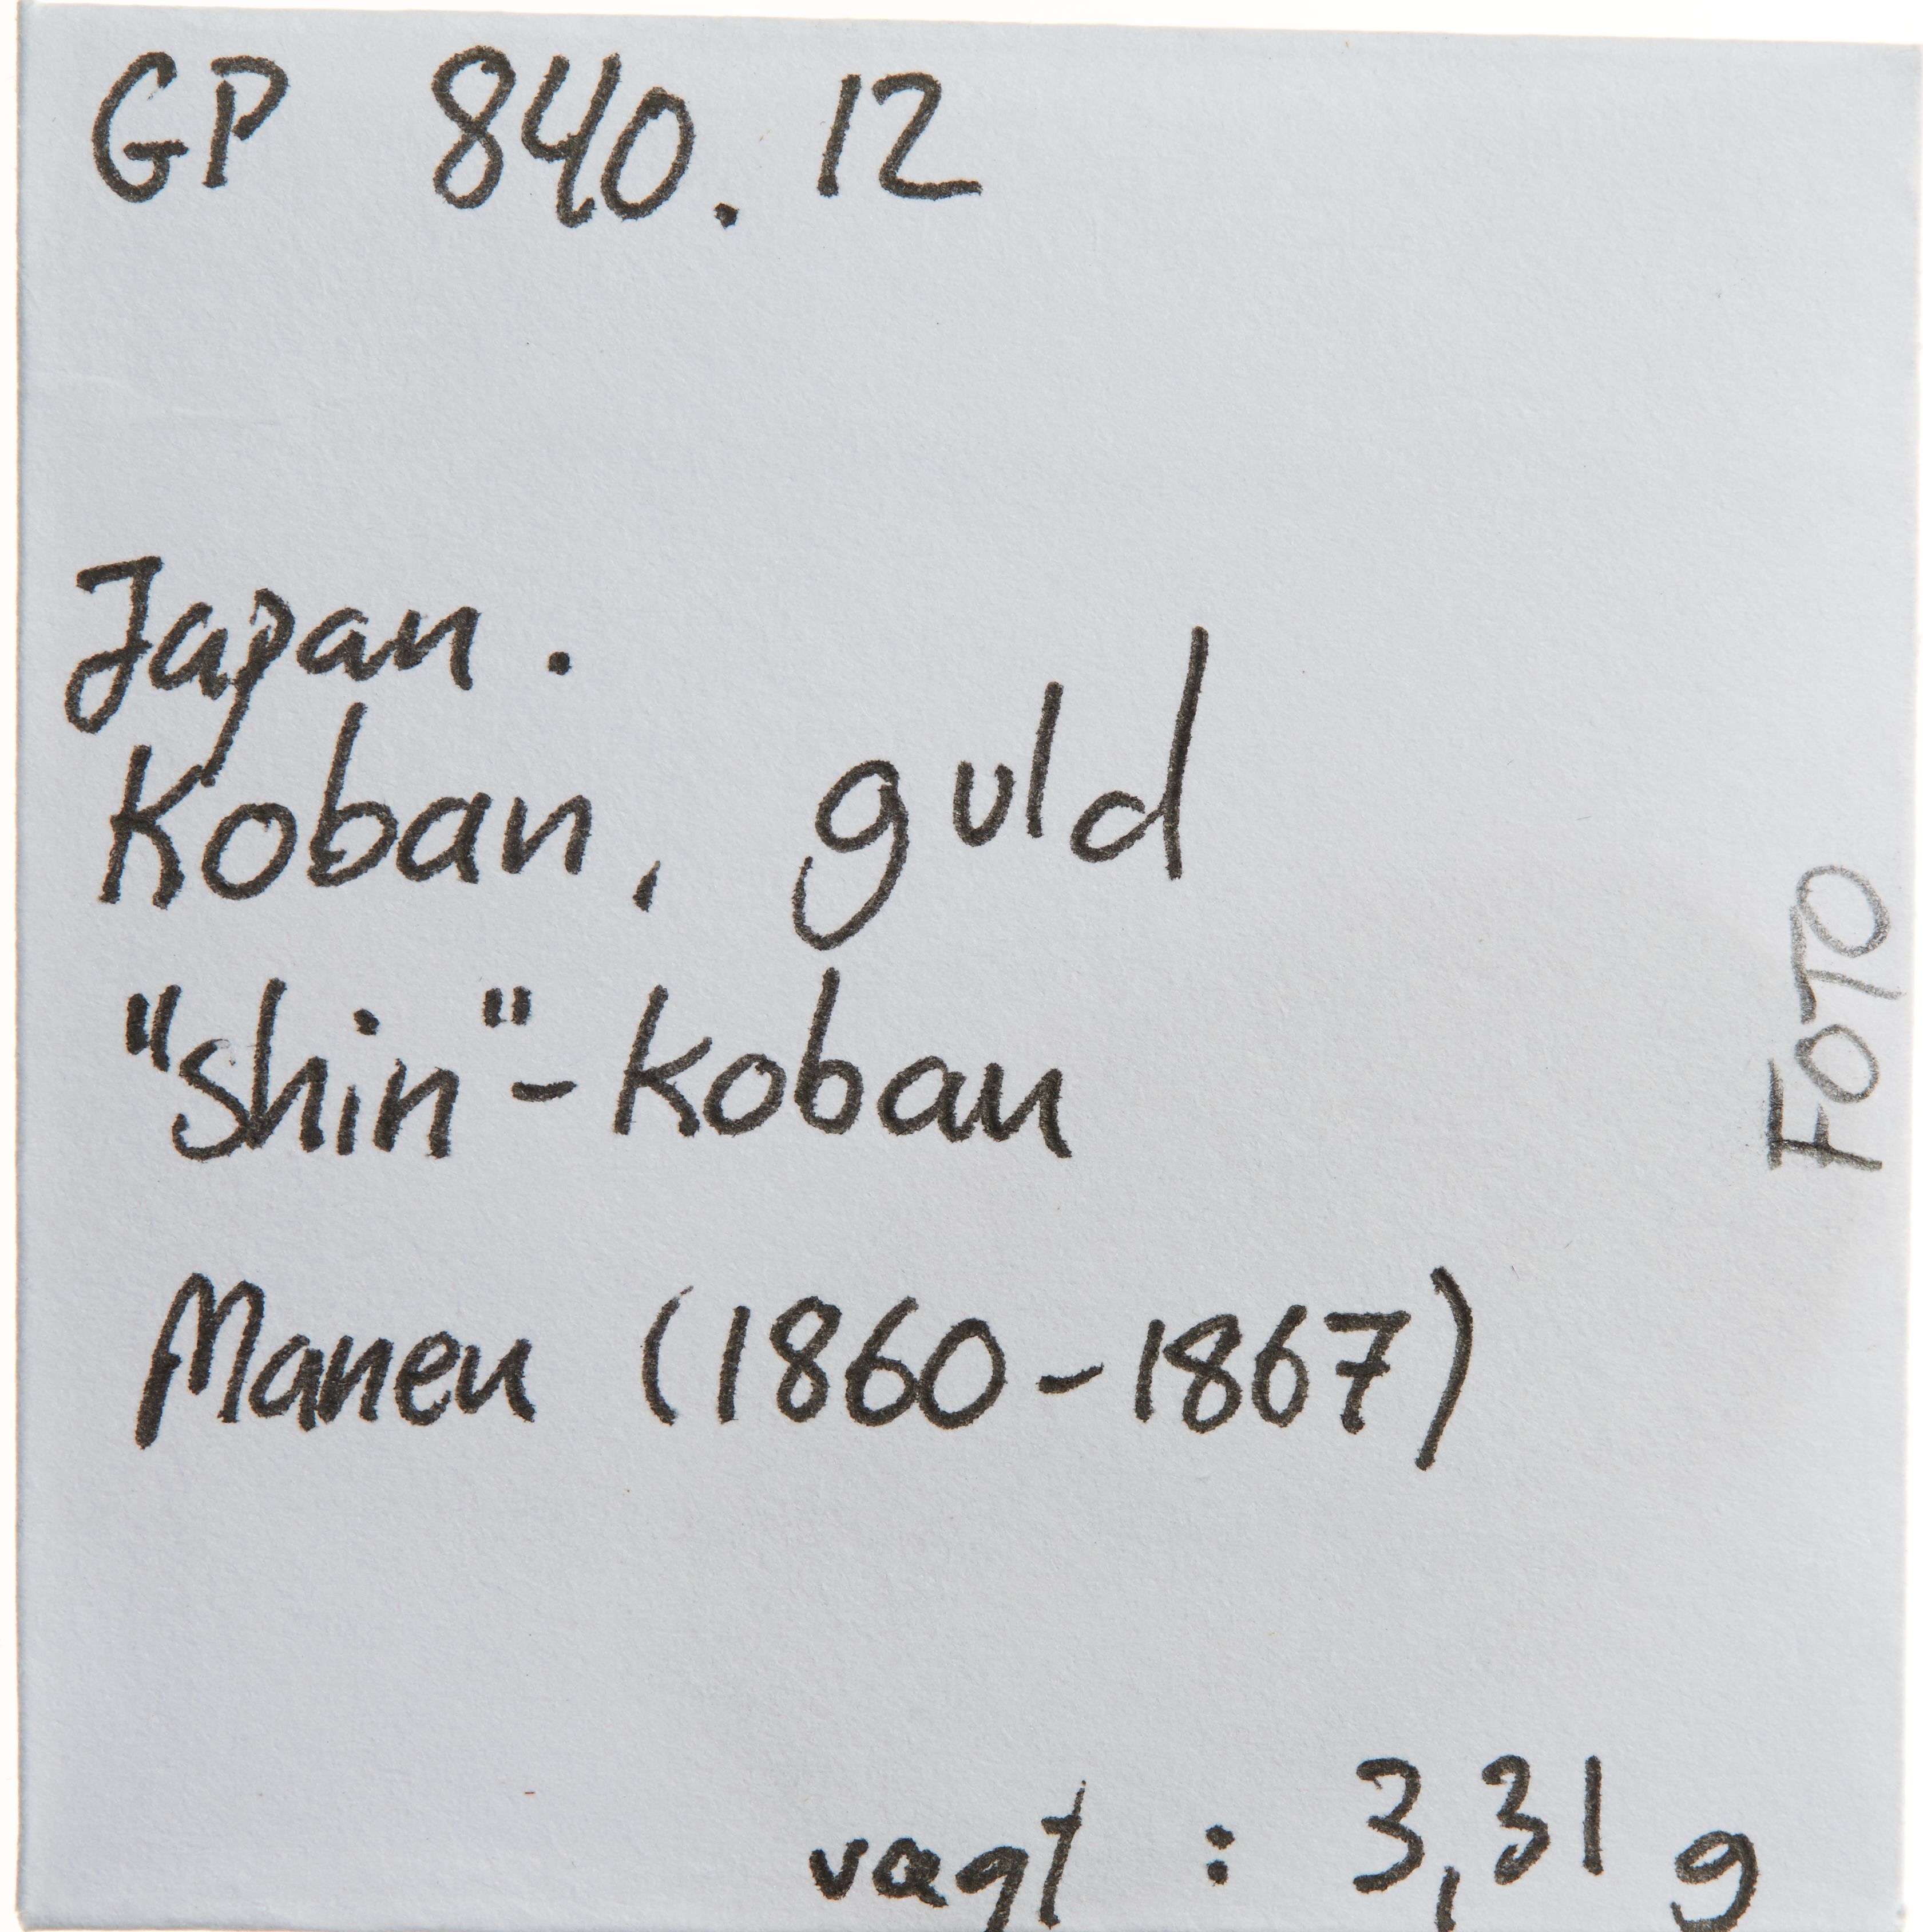 GP 840.12
Japan.
Koban, guld
"shin"-koban
Manen (1860-1867)
vægt : 3,31 g
FOTO